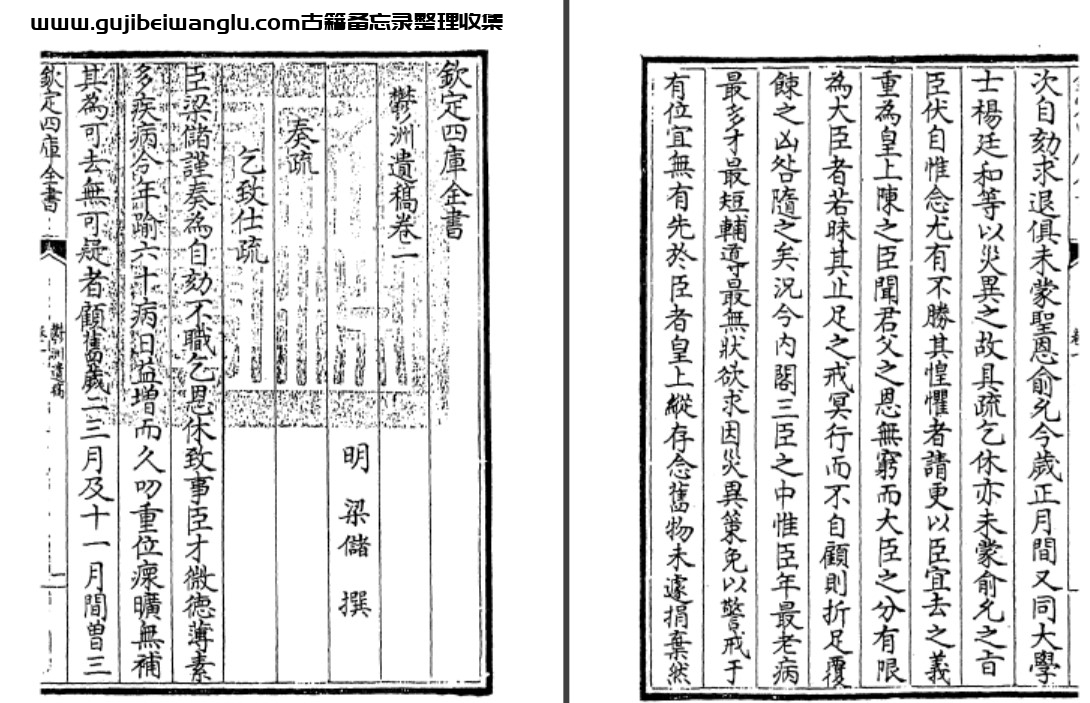 www.gujibeiwanglu.com古籍备忘录整理收集
欽定四庫全書
鬱洲遺稿卷二
明 梁儲 撰
奏疏
乞致仕疏
臣梁儲謹奏為自劾不職乞恩休致事臣才微徳薄素
多疾病今年踰六十病日益增而久叨重位瘝曠無補
其為可去無可疑者顧舊歲二三月及十一月間曽三
欽定四庫全書
鬱洲遺稿
次自劾求退俱未蒙聖恩俞允今歲正月間又同大學
士楊廷和等以災異之故具疏乞休亦未蒙俞允之旨
臣伏自惟念尤有不勝其惶懼者請更以臣宜去之義
重為皇上陳之臣聞君父之恩無窮而大臣之分有限
為大臣者若昧其止足之戒冥行而不自顧則折足覆
餗之凶咎隨之矣況今内閣三臣之中惟臣年最老病
最多才最短輔導最無狀欲求因災異策免以警戒于
有位宜無有先於臣者皇上縱存念舊物未遽捐棄然